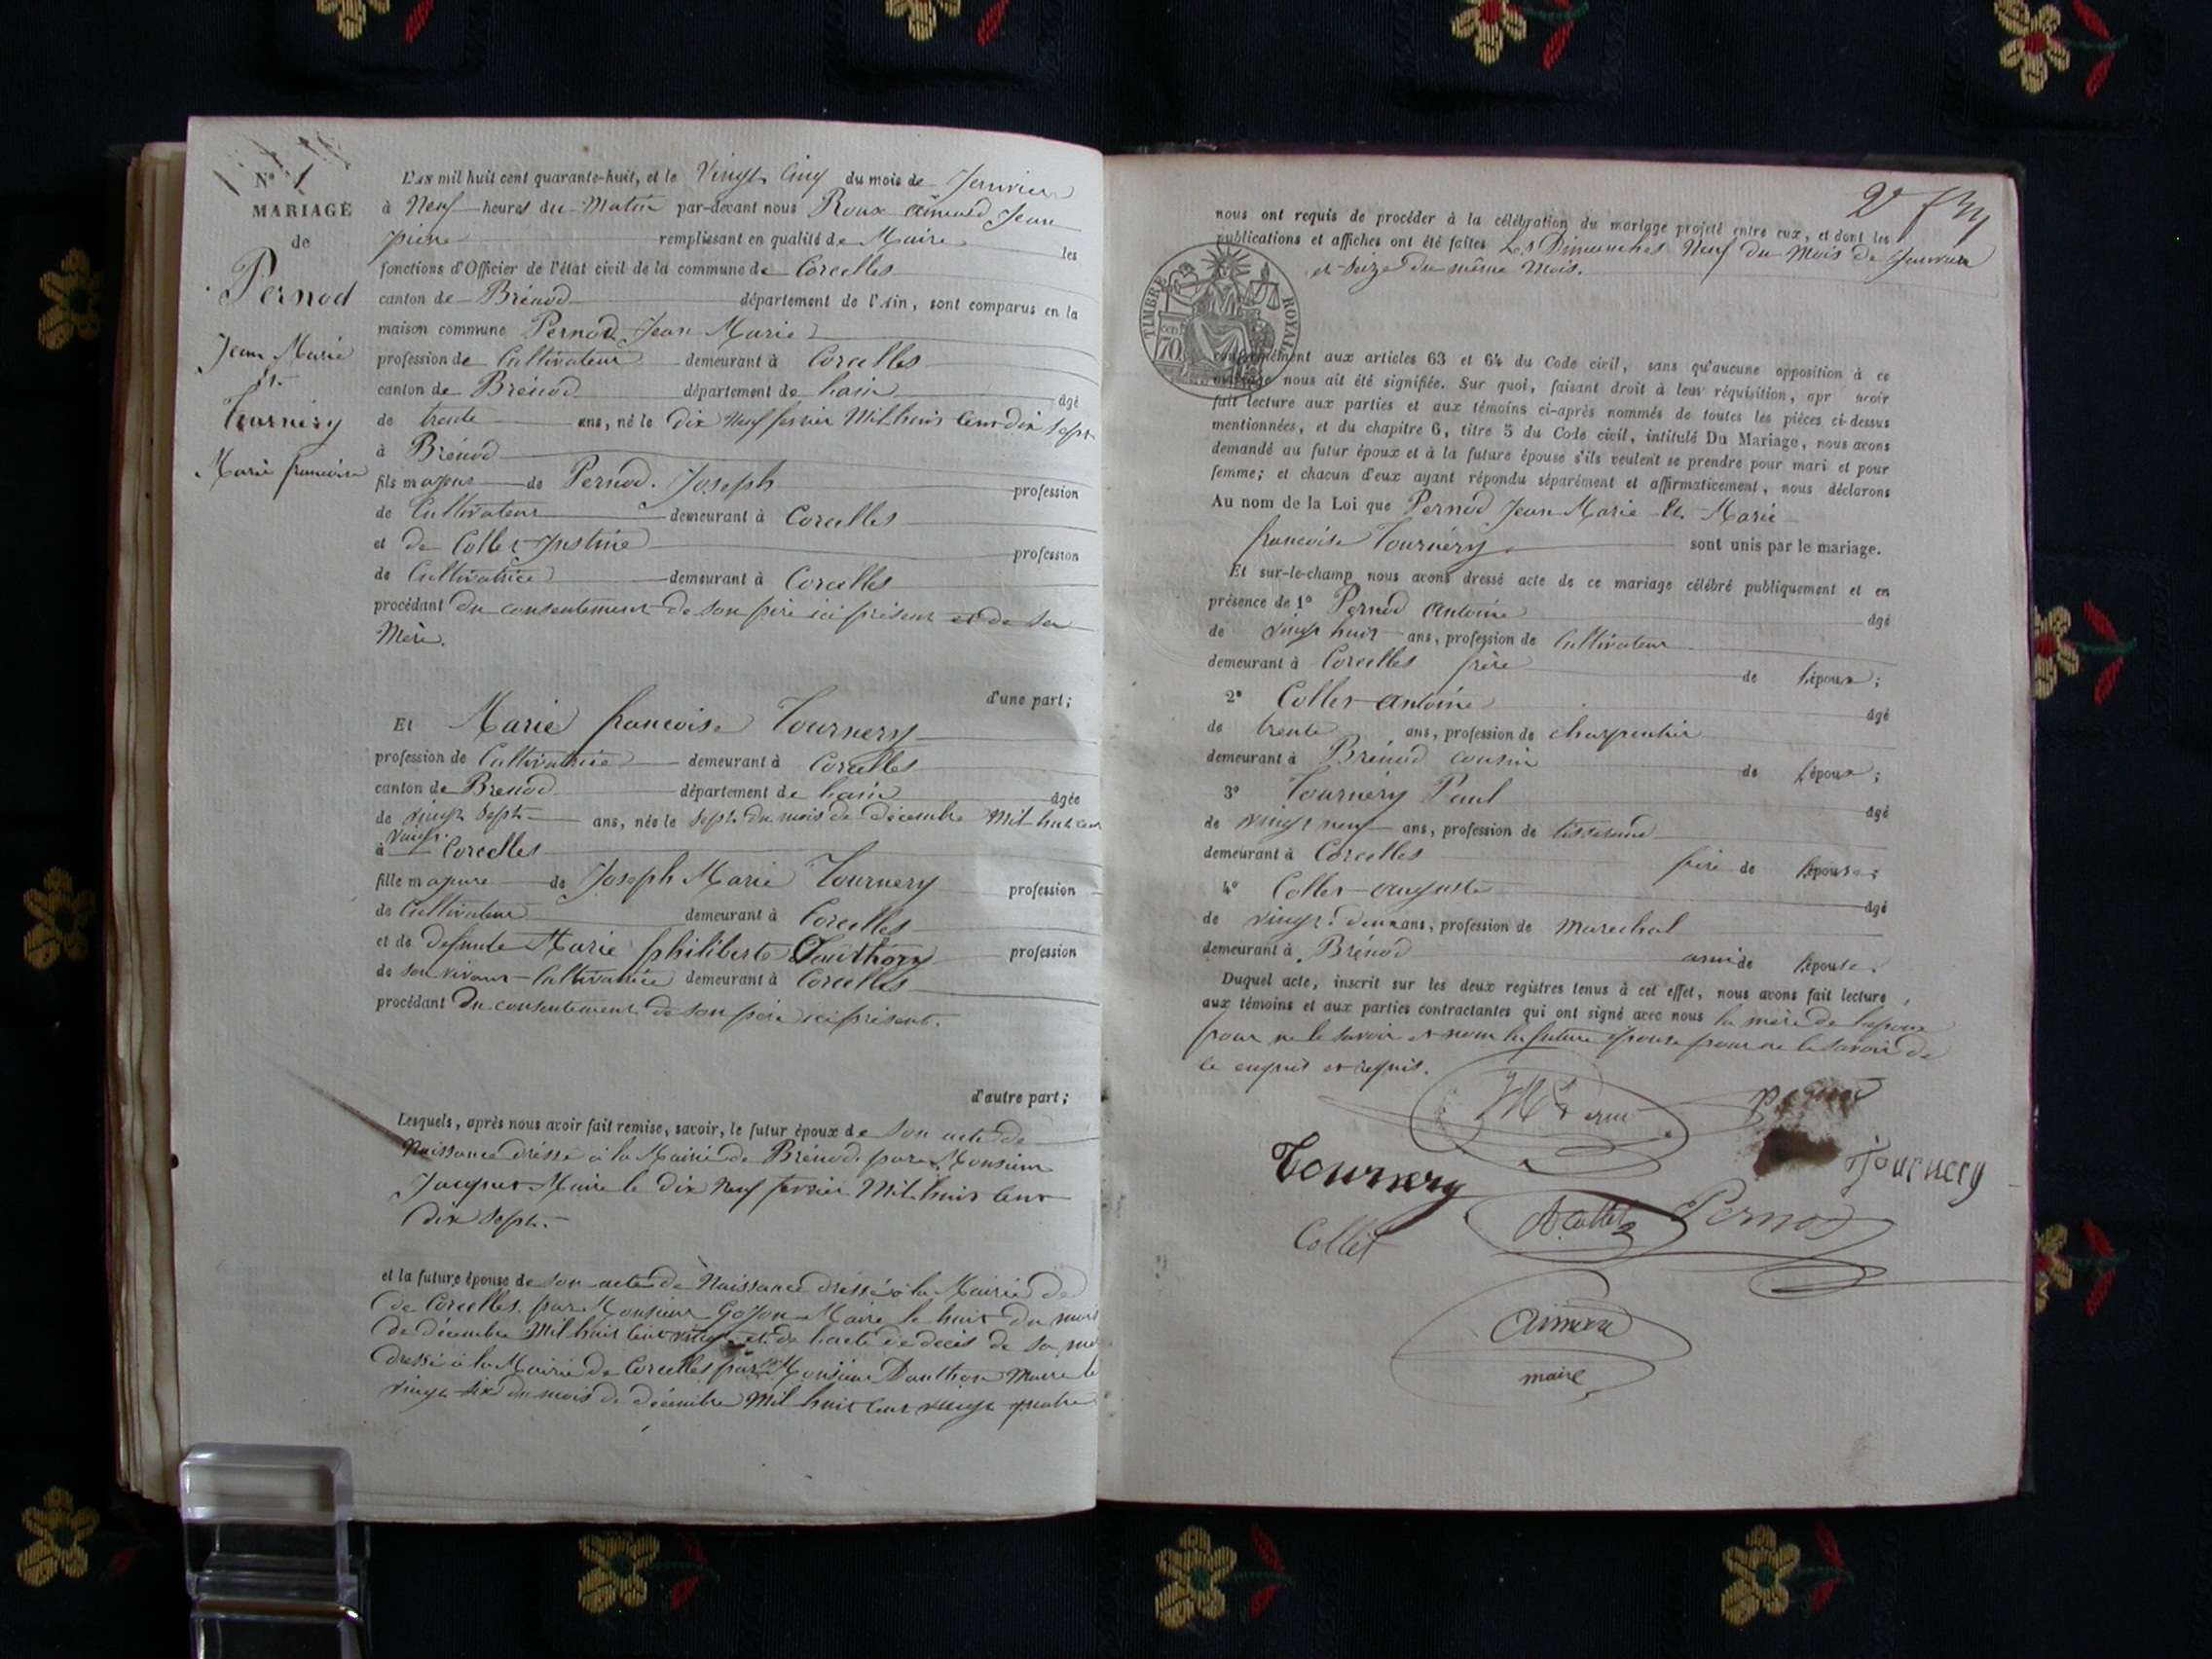 N° 1
MARIAGE
de
Pernod
Jean Marie
et
Tournéry
Marie francoise
L'AN mil huit cent quarante-huit, et le Vingt Cinq du mois de Janvier
à Neuf heures du Matin par-devant nous Roux aimard Jean
pierre remplissant en qualité de Maire les
fonctions d'Officier de l'état civil de la commune de Corcelles
canton de Brénod département de l'Ain, sont comparus en la
maison commune Pernod Jean Marie
profession de Cultivateur demeurant à Corcelles
canton de Brénod département de lain âgé
de trente ans, né le dix Neuf fevrier Mil huit Cent dix sept
à Brénod
fils majeur de Pernod Joseph profession
de Cultivateur demeurant à Corcelles
et de Collet Justine profession
de Cultivatrice demeurant à Corcelles
procédant du consentement de son père ici présent et de sa
Mère.
d'une part;
Et Marie francoise Tournery
profession de Cultivatrice demeurant à Corcelles
canton de Brenod département de lain âgée
de vingt Sept ans, née le Sept du mois de décembre Mil huit cent
vingt
à Corcelles
fille majeure de Joseph Marie Tournery profession
de Cultivateur demeurant à Corcelles
et de defunte Marie philiberte profession
de son vivant Cultivatrice demeurant à Corcelles
procédant du consentement de son père ici présent.
d'autre part;
Lesquels, après nous avoir fait remise, savoir, le futur époux de son acte de
Naissance dressé à la Mairie de Brénod par Monsieur
Jacquet Maire le dix Neuf fevrier Mil huit Cent
dix Sept.
et la future épouse de son acte de Naissance dressé à la Mairie de
de Corcelles par Monsieur Goyon Maire le huit du mois
de décembre Mil huit Cent vingt et de l'acte de décès de sa
dressé à la Mairie de Corcelles par Monsieur Dauthon Maire le
vingt six du mois de décembre Mil huit Cent vingt quatre
nous ont requis de procéder à la célébration du mariage projeté entre eux, et dont les
publications et affiches ont été faites Les Dimanches Neuf du Mois de Janvier
et Seize du même Mois.
TIMBRE ROYAL
70
conformément aux articles 63 et 64 du Code civil, sans qu'aucune opposition à ce
mariage nous ait été signifiée. Sur quoi, faisant droit à leur réquisition, apr avoir
fait lecture aux parties et aux témoins ci-après nommés de toutes les pièces ci-dessus
mentionnées, et du chapitre 6, titre 5 du Code civil, intitulé Du Mariage, nous avons
demandé au futur époux et à la future épouse s'ils veulent se prendre pour mari et pour
femme; et chacun d'eux ayant répondu séparément et affirmativement, nous déclarons
Au nom de la Loi que Pernod Jean Marie Et Marie
francoise Tournéry sont unis par le mariage.
Et sur-le-champ nous avons dressé acte de ce mariage célébré publiquement et en
présence de 1° Pernod Antoine âgé
de vingt huit ans, profession de Cultivateur
demeurant à Corcelles frère de l'époux;
2° Collet antoine âgé
de trente ans, profession de charpentier
demeurant à Brénod cousin de l'époux;
3° Tournéry Paul âgé
de vingt neuf ans, profession de tisserand
demeurant à Corcelles frère de l'épouse;
4° Collet auguste âgé
de vingt deux ans, profession de marechal
demeurant à Brénod ami de l'épouse.
Duquel acte, inscrit sur les deux registres tenus à cet effet, nous avons fait lecture
aux témoins et aux parties contractantes qui ont signé avec nous la mère de l'époux
pour ne le savoir et non la future épouse pour ne le savoir de
ce enquis et requis.
Pernod
Tournery
Tournery
Collet
Pernod
Aimard
maire